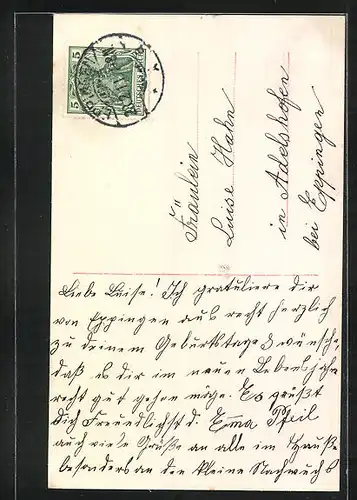 5 5
DEUTSCHES REICH
Fräulein
Luise Hahn
in Adelshofen
bei Eppingen
Liebe Luise! Ich gratuliere dir
von Eppingen aus recht herzlich
zu deinem Geburtstage & wünsche,
daß es dir im neuen Lebensjahr
recht gut gehen möge. Es grüßt
dich Freundlichst d: Emma Pfeil
auch viele Grüße an alle im Hause
besonders an den kleine Nachwuchs